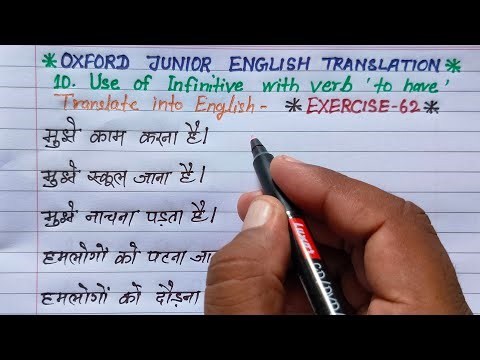 *OXFORD JUNIOR ENGLISH TRANSLATION*
10. Use of Infinitive with verb 'to have'
Translate into English - *EXERCISE-62*
मुझे काम करना है।
मुझे स्कूल जाना है।
मुझे नाचना पड़ता है।
हमलोगों को पटना जा
हमलोगों को दौड़ना